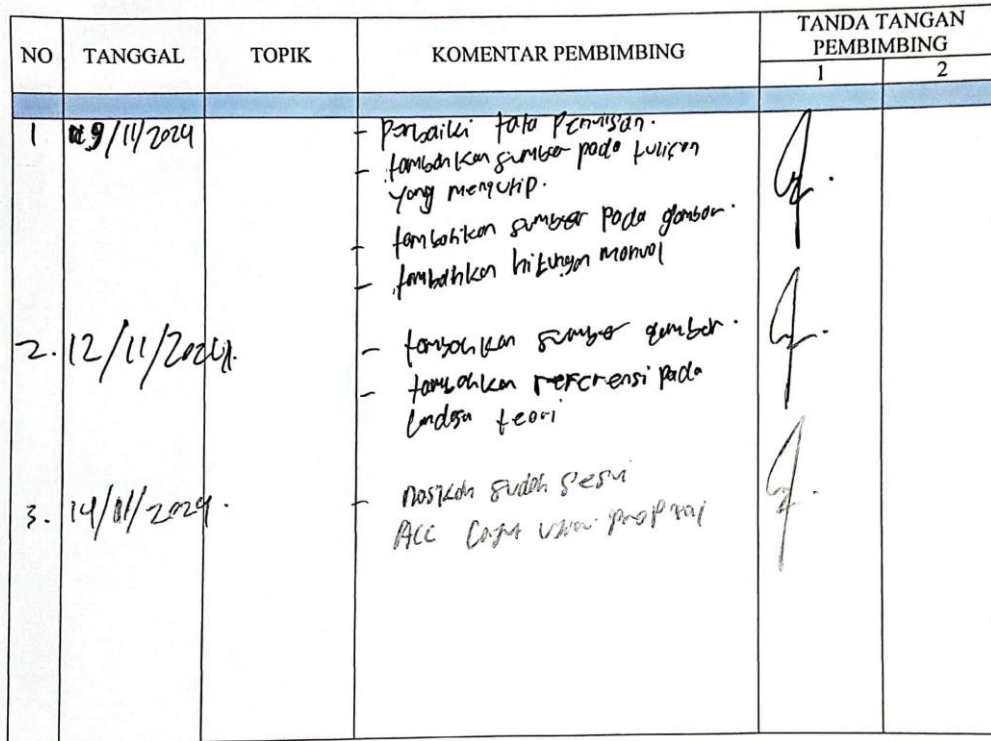 NO TANGGAL TOPIK KOMENTAR PEMBIMBING TANDA TANGAN PEMBIMBING
1 2
1 9/11/2024 - Perbaiki tata Penulisan.
- tambahkan sumber pada tulisan
yang mengutip.
- tambahkan sumber pada gambar.
- tambahkan hitungan manual
2. 12/11/2024. - tambahkan sumber gambar.
- tambahkan referensi pada
landasan teori
3. 14/11/2024. - naskah sudah sesuai
ACC Lanjut ujian proposal